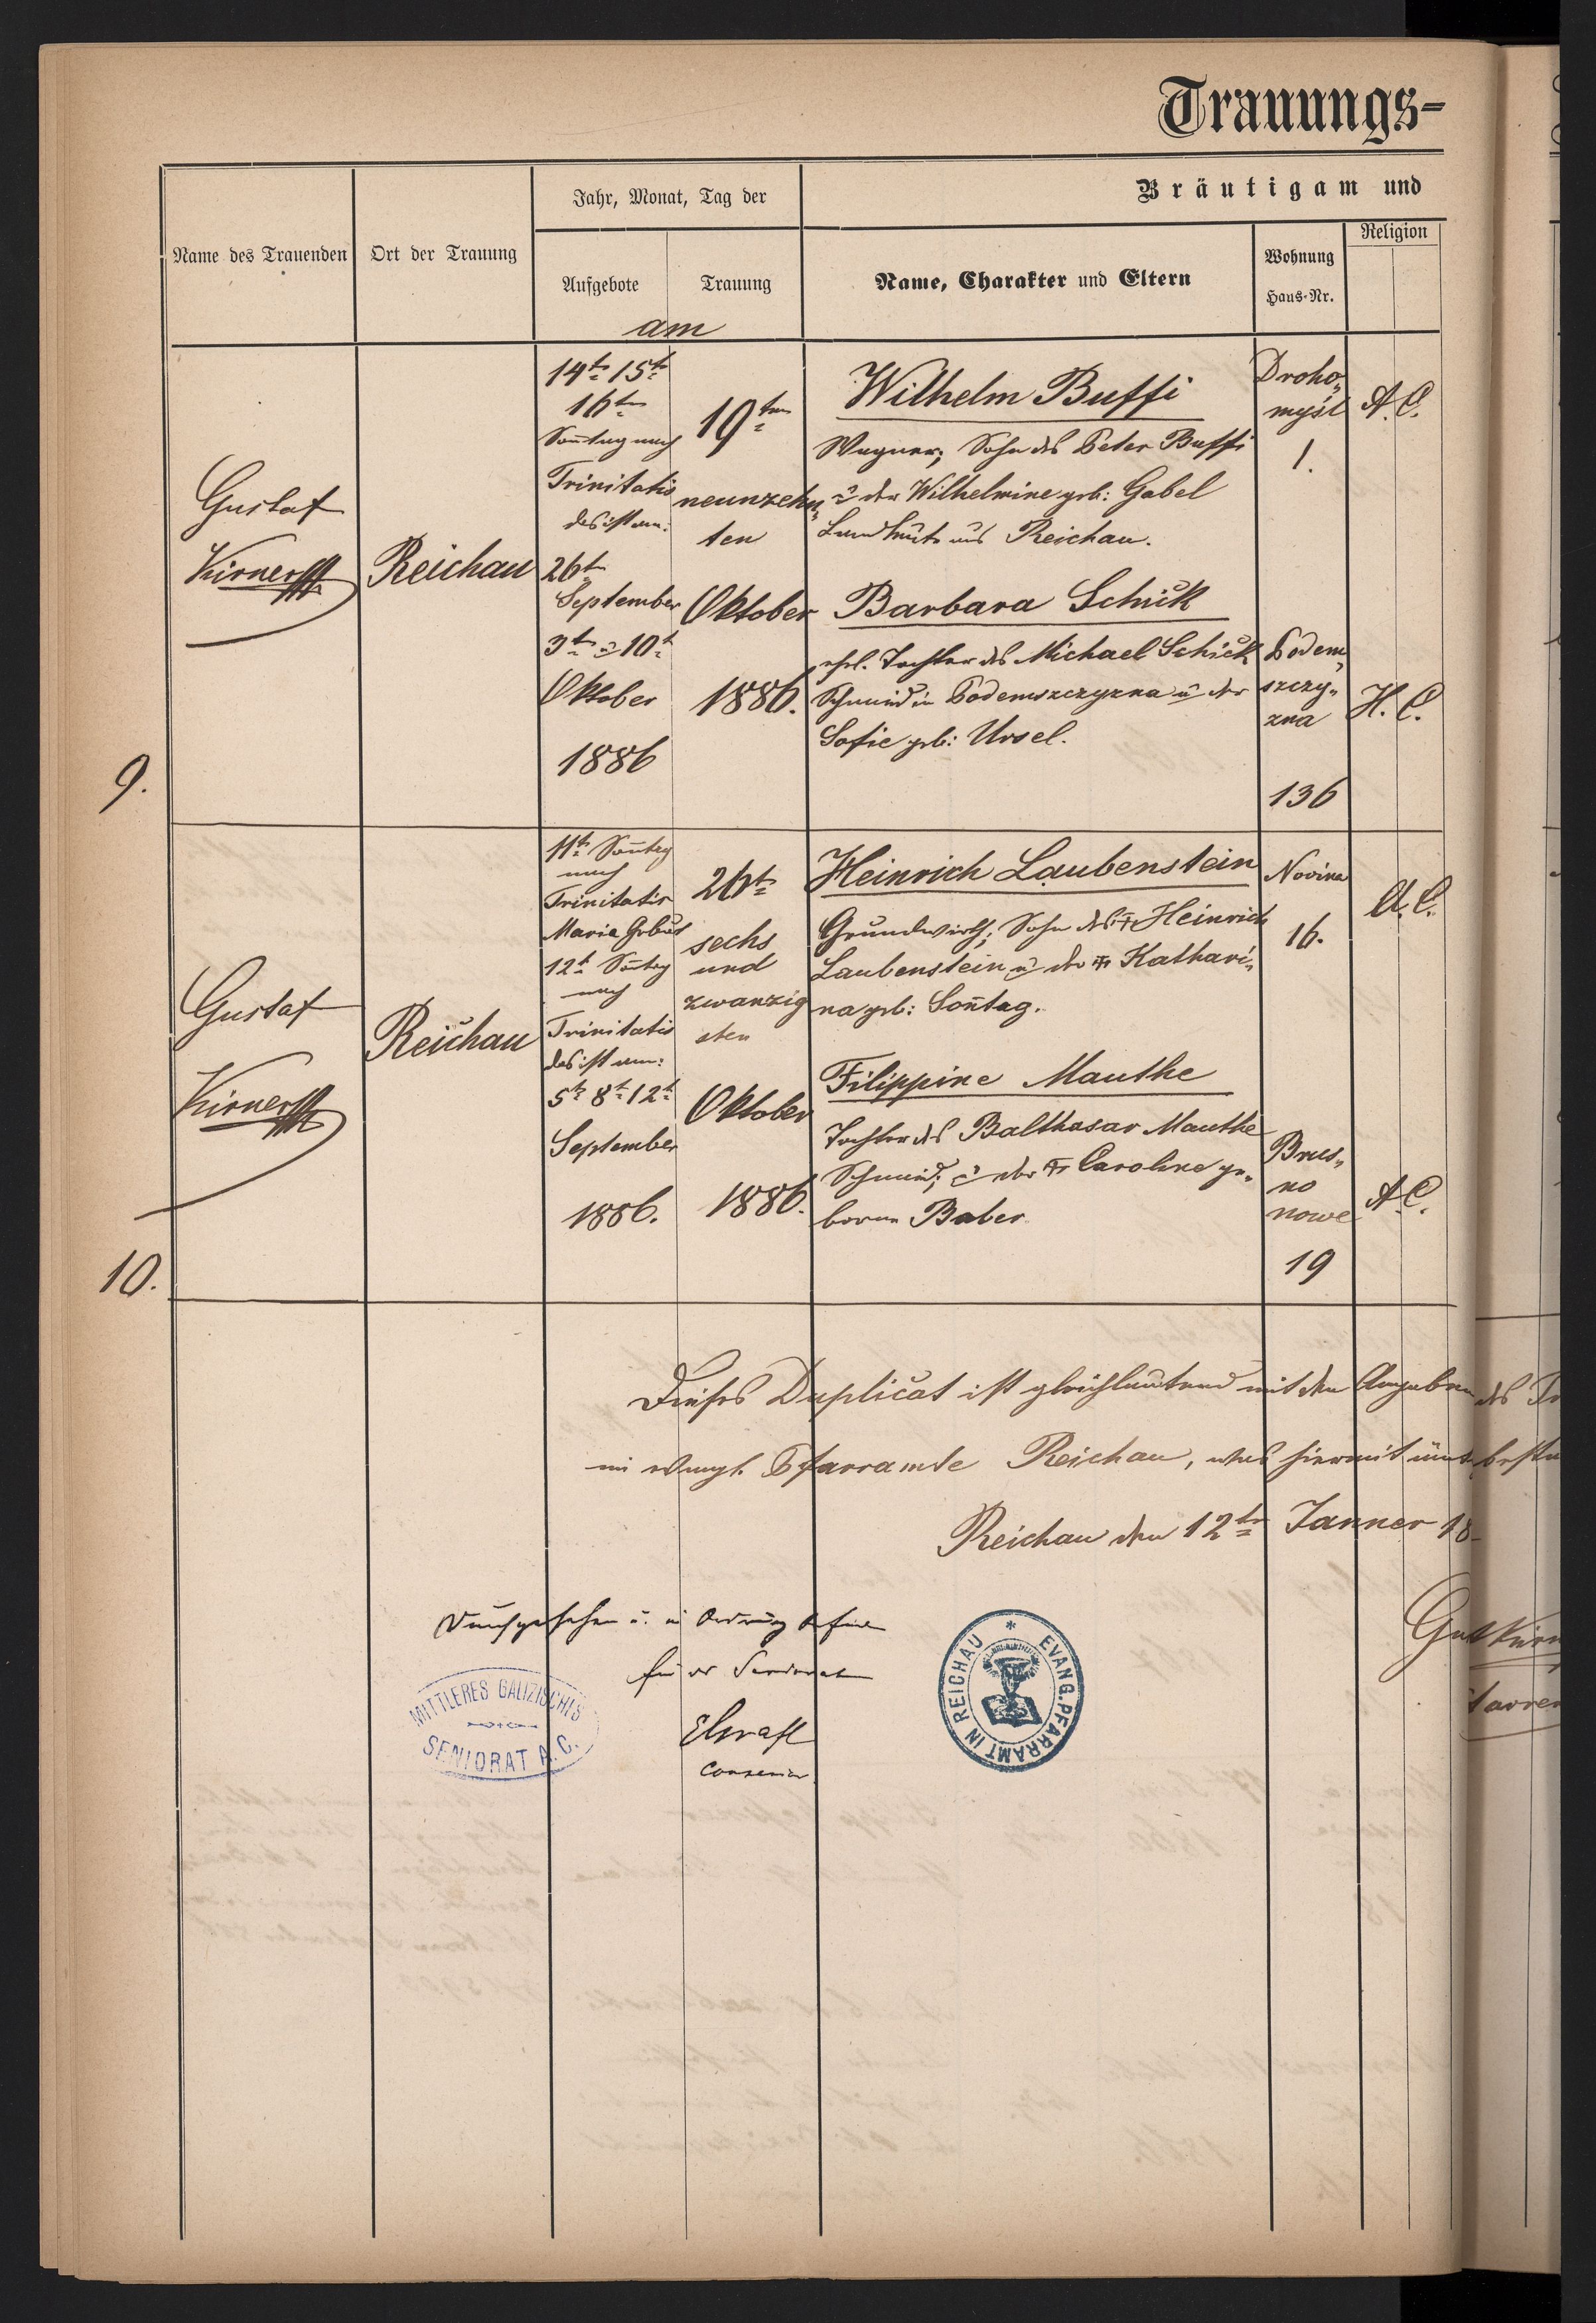 Trauungs-
Name des Trauenden
Ort der Trauung
Jahr, Monat, Tag der
Aufgebote
Trauung
am
Bräutigam und
Name, Charakter und Eltern
Wohnung
Haus-Nr.
Religion
9.
Gustaf
Kirner
Reichau
14t. 15t.
16ten
Sontag nach
Trinitatis
das ist am:
26t.
September
3t. u 10t.
Oktober
1886
19ten
neunzehn„
ten
Oktober
1886.
Wilhelm Buffi
Wagner; Sohn des Peter Buffi
u der Wilhelmine geb: Gabel
Landleute aus Reichau.
Barbara Schick
ehel. Tochter des Michael Schick
Schmied in Podemszczyzna u der
Sofie geb: Ursel.
Droho„
myśl
1.
Podem„
szczy„
zna
136
A. C.
H. C.
10.
Gustaf
Kirner
Reichau
11t. Sontag
nach
Trinitatis
Maria Geburt
12t. Sontag
nach
Trinitatis
das ist am:
5t. 8t. 12t.
September
1886.
26t.
sechs
und
zwanzig
sten
Oktober
1886.
Heinrich Laubenstein
Grundwirth; Sohn des † Heinrich
Laubenstein u der † Kathari„
na geb: Sontag.
Filippine Mauthe
Tochter des Balthasar Mauthe
Schmied; u der † Caroline ge„
borne Baber
Novina
16.
Brus„
no
nowe
19
A. C.
A. C.
Dieses Duplicat ist gleichlautend mit den Angaben des
im evangl. Pfarramte Reichau, was hiermit
Reichau den 12t. Janner 18
Durchgesehen u. in Ordnung befunden
für das Seniorat
MITTLERES GALIZISCHES
SENIORAT A. C.
EVANG. PFARRAMT IN REICHAU